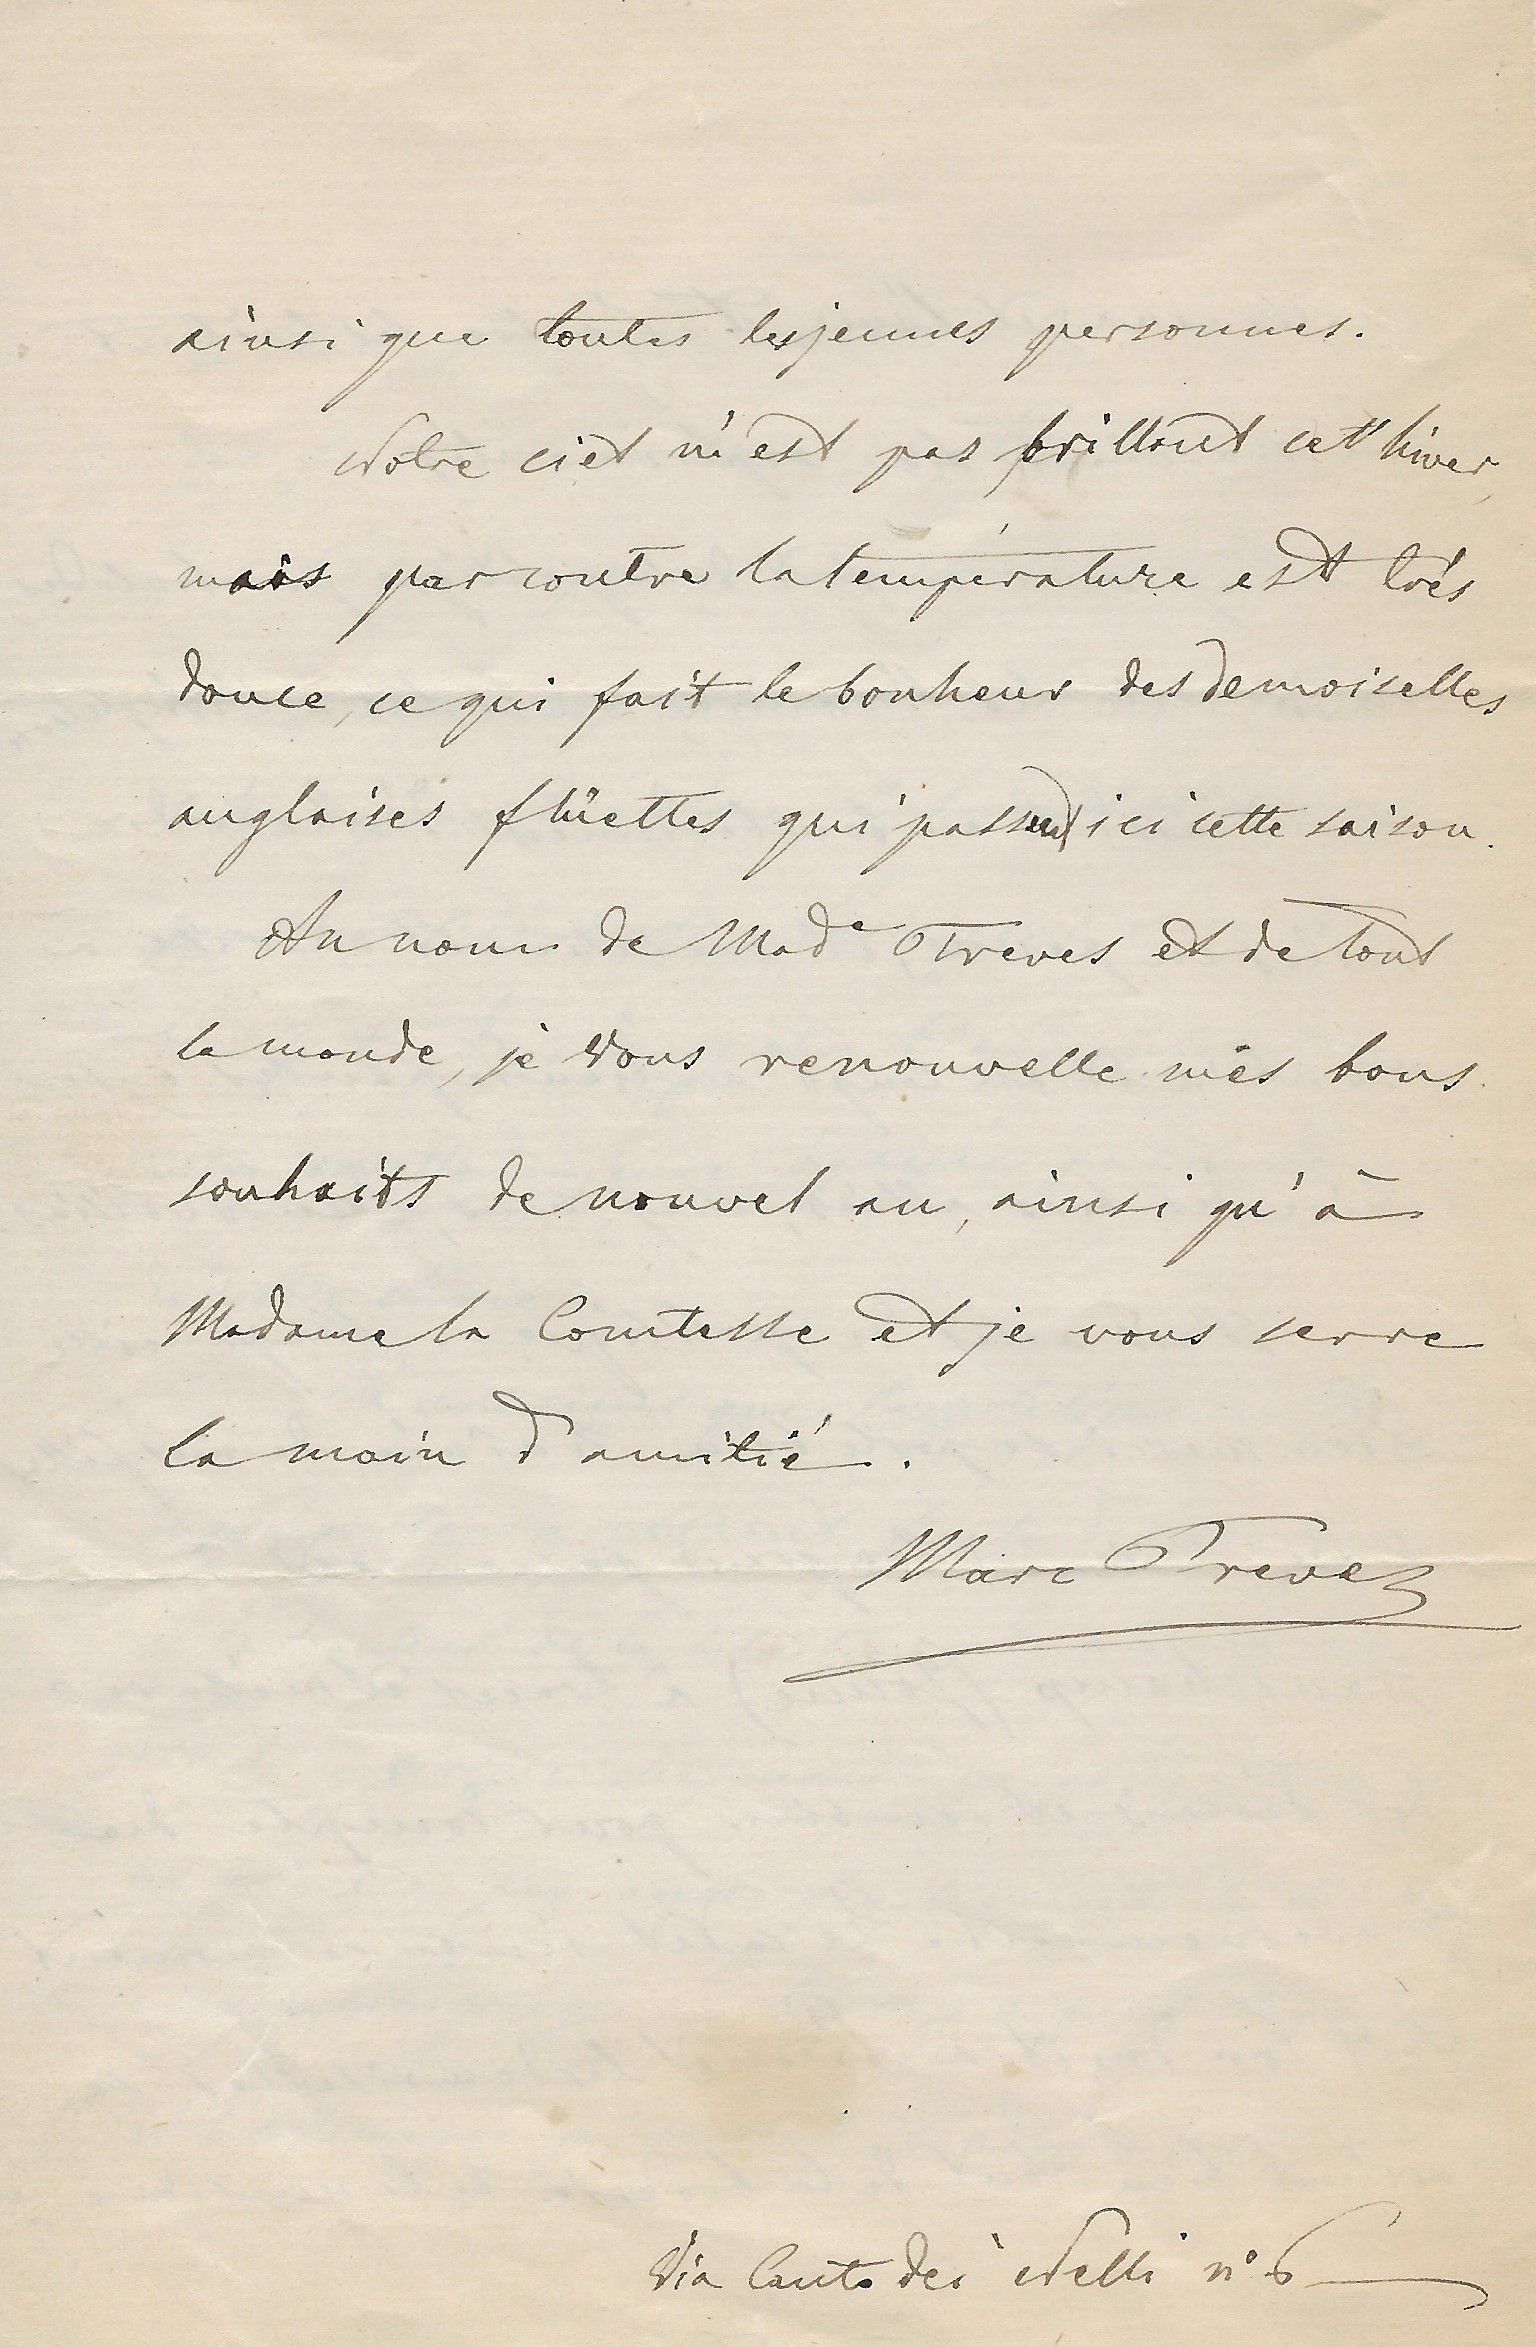 ainsi que toutes les jeunes personnes.
Notre ciel n'est pas brillant cet hiver,
mais par contre la température est très
douce, ce qui fait le bonheur des demoiselles
anglaises flüettes qui passent ici cette saison.
Au nom de Made Treves et de tout
le monde, je vous renouvelle mes bons
souhaits de nouvel an, ainsi qu'à
Madame la Comtesse et je vous serre
la main d'amitié.
Marc Treves
Via Canto dei Nelli n° 6